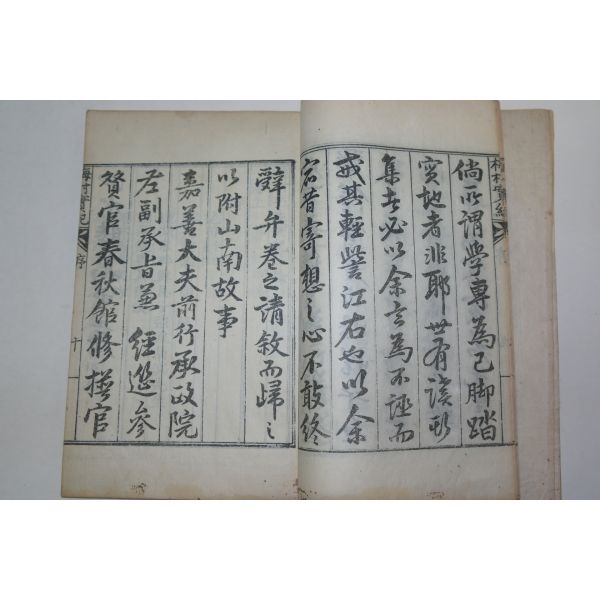 倘所謂學專為己脚踏
實地者非耶世有讀斯
集者必以余言為不誣而
或其輕訾江右也以余
宕昔寄想之心不敢終
辭弁卷之請敘而歸之
以附山南故事
嘉善大夫前行承政院
左副承旨兼 經筵參
贊官春秋館修撰官
序
十